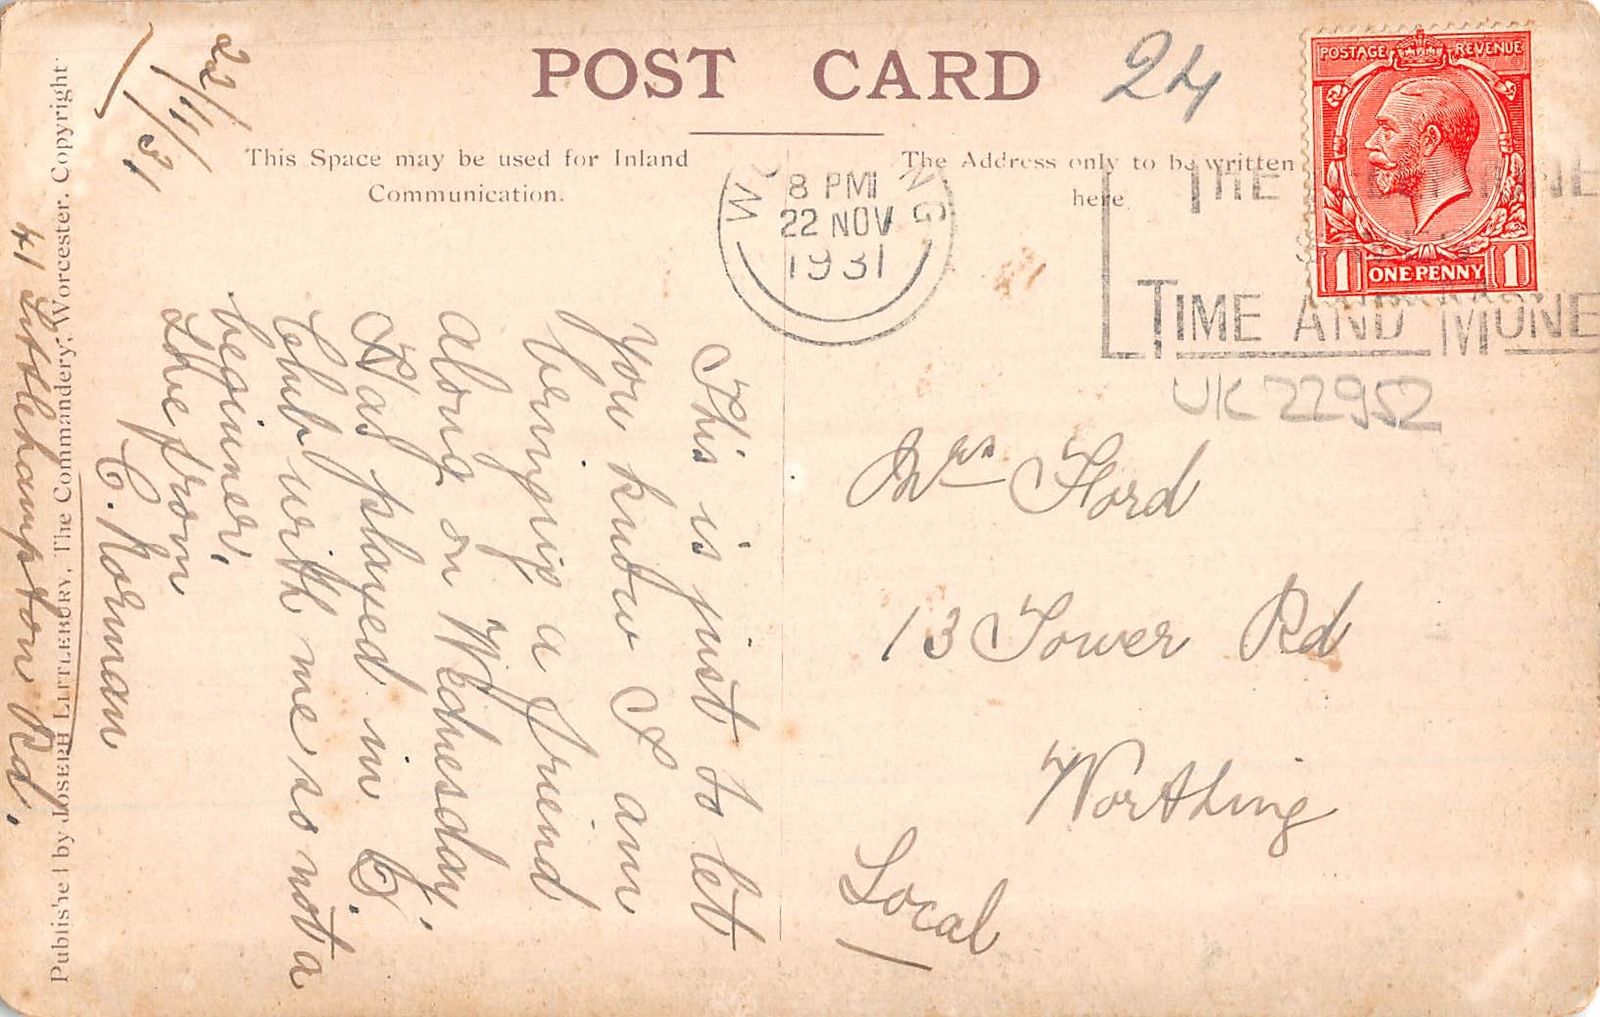 POST CARD
24
This Space may be used for Inland
Communication.
The Address only to be written
here.
POSTAGE REVENUE
1 ONE PENNY 1
8 PM
22 NOV
1931
THE
TIME AND MONE
UK 22952
22/11/31
41 Littlehampton Rd.
This is just to let
you know I am
bringing a friend
along on Wednesday.
Has played in C.
Club with me so not a
beginner.
Love from
C. Norman
Mrs Ford
13 Tower Rd
Worthing
Local
Published by JOSEPH LITTLEBURY, The Commandery, Worcester. Copyright